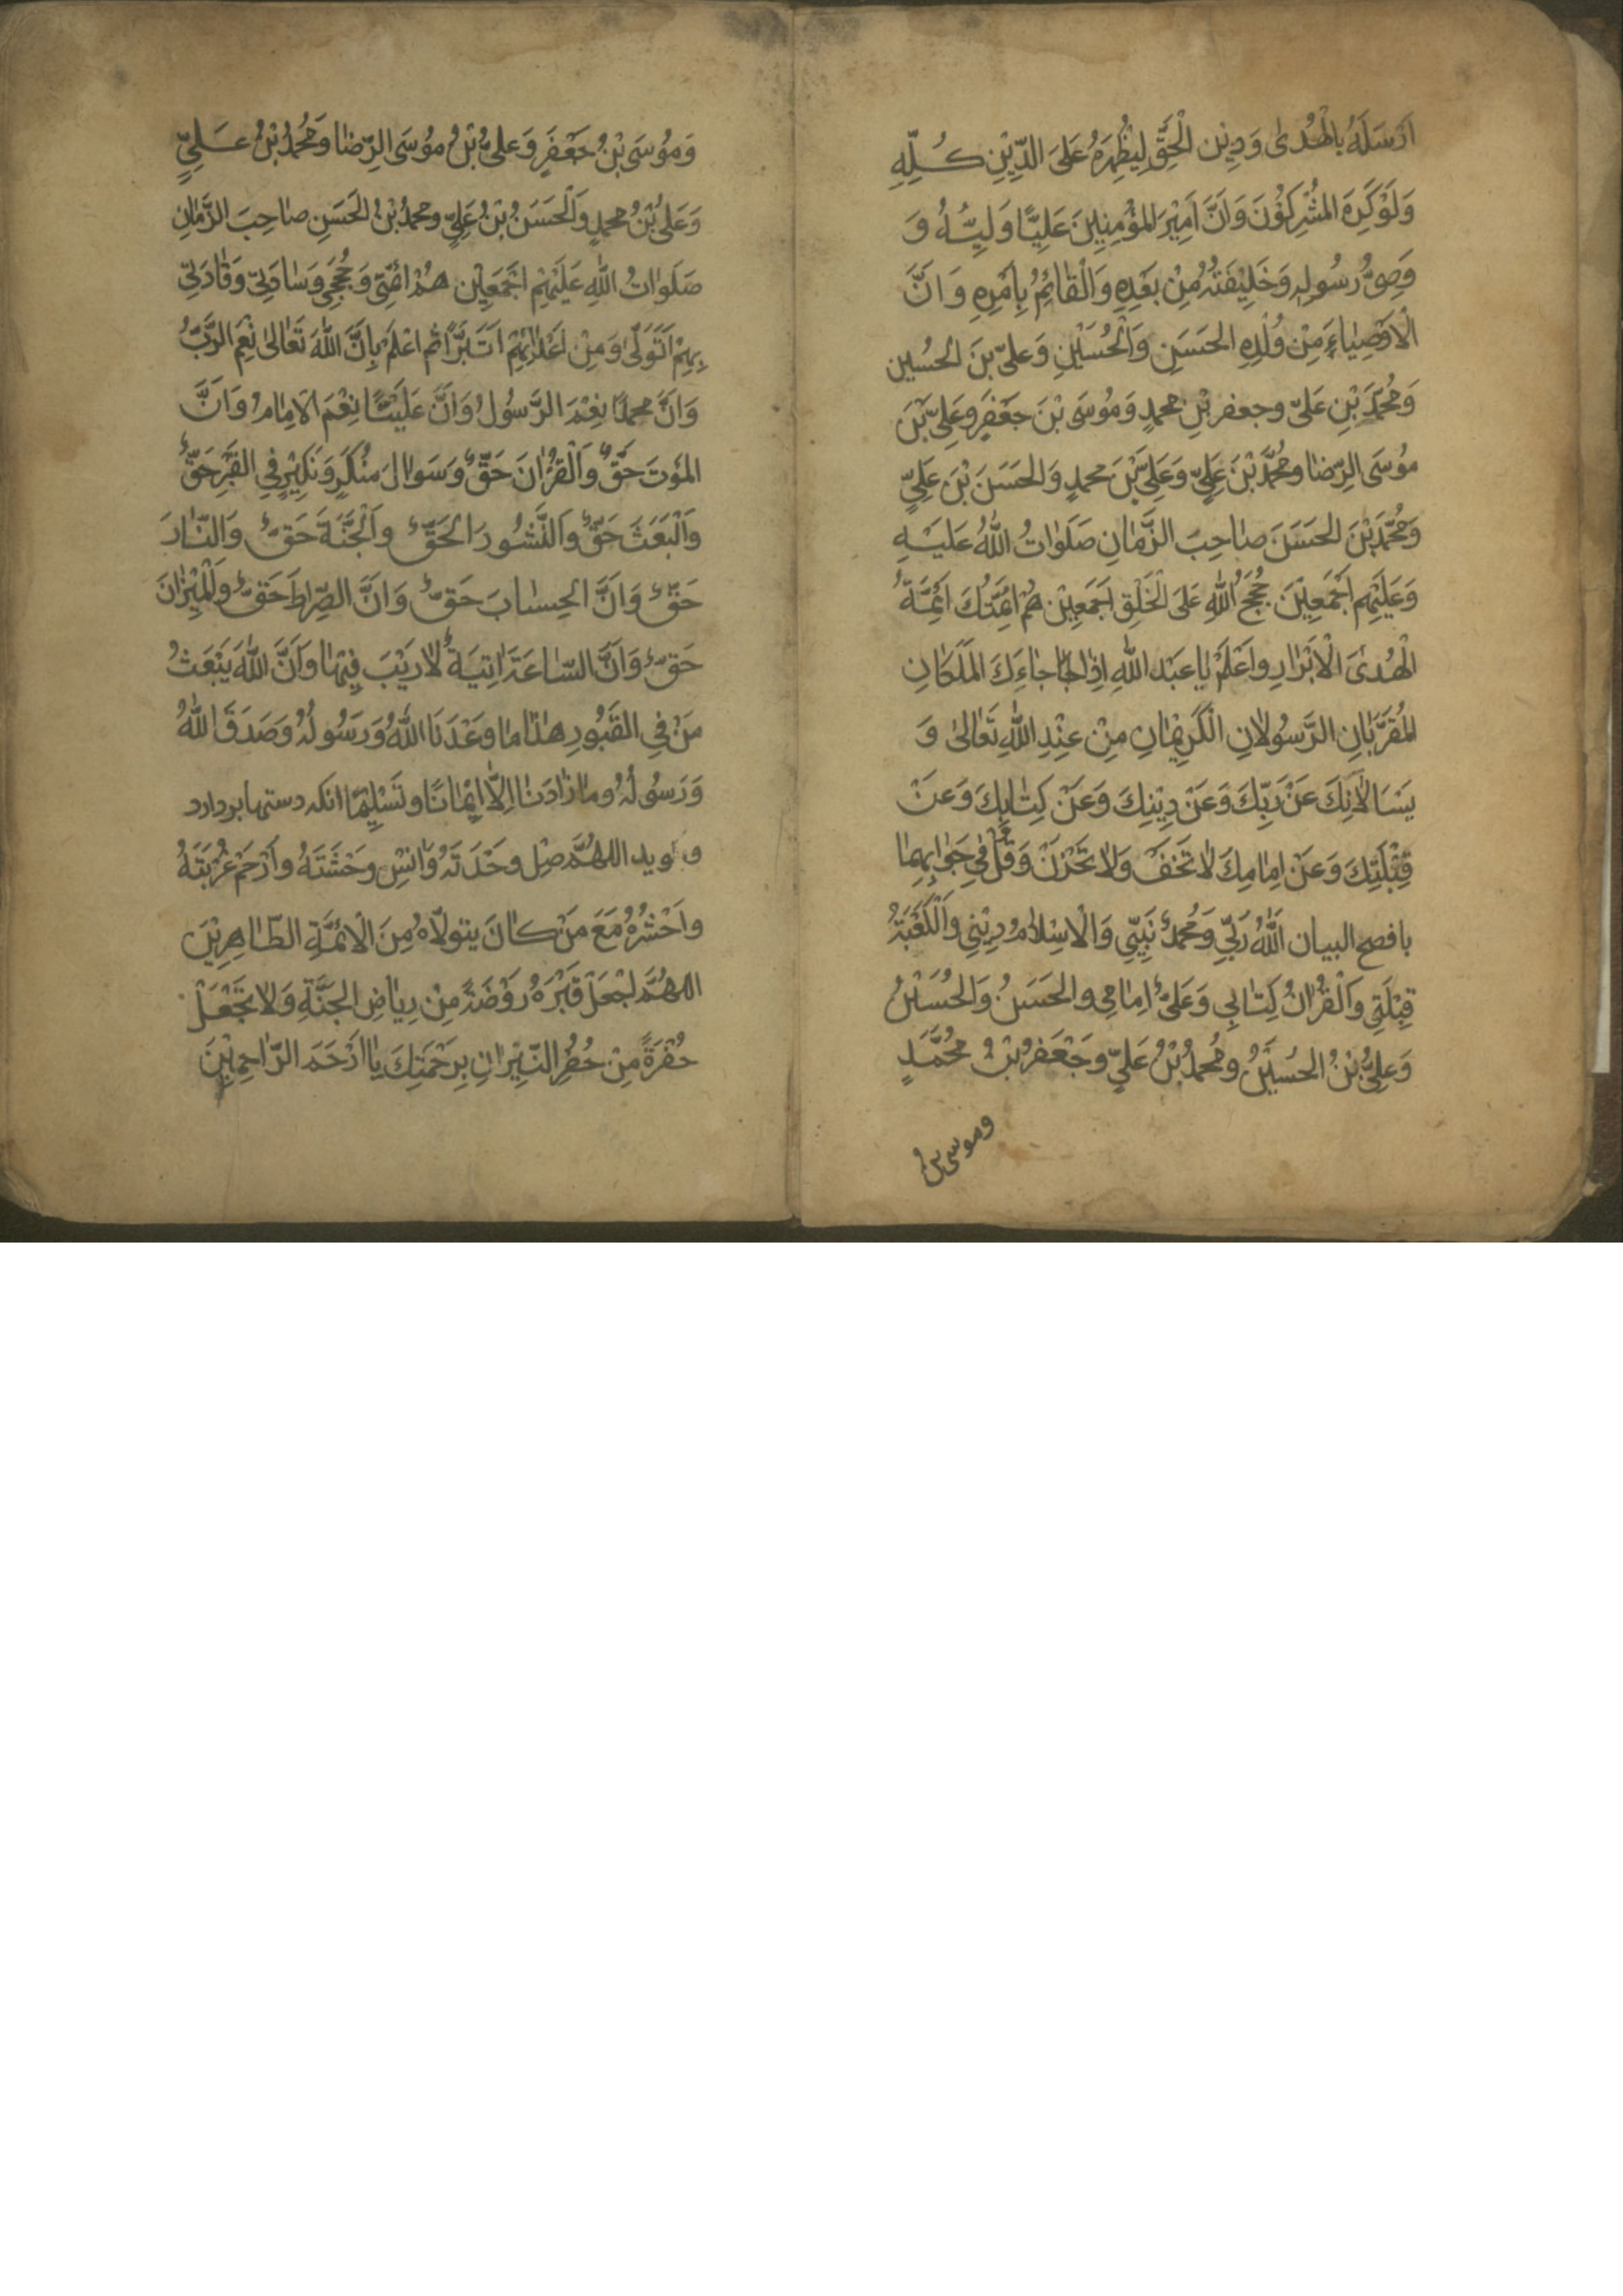 اَرْسَلَهُ بِالْهُدىٰ وَ دِيْنِ الْحَقِّ لِيُظْهِرَهُ عَلَى الدِّيْنِ كُلِّهِ
وَلَوْ كَرِهَ الْمُشْرِكُوْنَ وَاَنَّ اَمِيْرَ الْمُؤْمِنِيْنَ عَلِيًّا وَلِيُّهُ وَ
وَصِىُّ رَسُولِهِ وَخَلِيْفَتُهُ مِنْ بَعْدِهِ وَالْقَائِمُ بِاَمْرِهِ وَ اَنَّ
الْاَوْصِيَاءِ مِنْ وُلْدِهِ الْحَسَنِ وَالْحُسَيْنِ وَعَلِىّ بْنَ الْحُسِين
وَمُحَمَّدِ بْنِ عَلِىّ وجعفر بْنِ محمدٍ وَمُوسَى بْنَ جَعْفَرٍ وعَلِىِّ بْنَ
مُوسَى الرِّضَا ومُحَمَّدَ بْنَ عَلِيٍّ وَعَلِىَّ بْنَ محمدٍ وَالحَسَنَ بْنَ عَلِيٍّ
وَمُحَمَّدَ بْنَ الحَسَنَ صَاحِبَ الزَّمَانِ صَلَوَاتُ اللّٰهُ عَلَيْهِ
وَعَلَيْهِم اَجْمَعِيْنَ حُجَجُ اللّٰهِ عَلَى الْخَلْقِ اَجْمَعِيْنَ هُمْ اَئِمَّتُكَ اَئِمَّةُ
الْهُدىٰ الْاَبْرَارِ وَاعْلَمْ يَا عَبْدَ اللّٰهِ اِذَا جَاءَكَ الْمَلَكَانِ
الْمُقَرَّبَانِ الرَّسُولَانِ الْكَرِيْمَانِ مِنْ عِنْدِ اللّٰهِ تَعَالىٰ وَ
يَسَالَانِكَ عَنْ رَبِّكَ وَعَنْ دِيْنِكَ وَعَنْ كِتَابِكَ وَعَنْ
قِبْلَتِكَ وَعَنْ اِمَامِكَ لَا تَخَفْ وَلَا تَحْزَنْ وَقُلْ فِي جَوَابِهِمَا
بافصح البيان اَللّٰهُ رَبِّي وَمُحَمَّدٌ نَبِيِّي وَالْاِسْلَامُ دِيْنِي وَالْكَعْبَةُ
قِبْلَتِي وَالْقُرْانُ كِتَابِي وَعَلِىٌّ اِمَامِي والحَسَنُ وَالحُسَيْنُ
وَعَلِىُّ بْنُ الْحُسَيْنُ ومُحَمدُ بْنُ عَلِيٍّ وجَعْفَرُ بْنُ مُحَمَّدٍ
وموسى بنُ
وَمُوسَى بْنُ جَعْفَرٍ وَعَلِىُّ بْنُ مُوسَى الرِّضَا وَمُحَمدُ بْنُ عَلِيٍّ
وَعَلىُّ بْنُ محمدٍ وَالْحَسَنُ بْنُ عَلِيٍّ ومحمدُ بْنُ الحَسَنِ صَاحِبَ الزَّمَانِ
صَلَوَاتُ اللّٰهِ عَلَيْهِمْ اَجْمَعِيْن هُمْ اَئِمَّتِي وَحُجَجِي وَسَادَتِيْ وَقَادَتِيْ
بِهِمْ اَتَوَلّٰى وَمِنْ اَعْدَائِهِمْ اَتَبَرَّأُ ثم اعْلَمْ بِاَنَّ اللّٰهَ تَعَالىٰ نِعْمَ الرَّبُّ
وَاَنَّ محمدًا نِعْمَ الرَّسُولُ وَاَنَّ عَلِيًّا نِعْمَ الاِمَامُ وَاَنَّ
المَوْتَ حَقٌّ وَالْقُرْانَ حَقٌّ وَسَوالَ مُنْكَرٍ وَنَكِيْرٍ فِي القَبْرِ حَقٌّ
وَالْبَعَثَ حَقٌّ وَالنَّشُورَ الحَقٌّ وَالْجَنَّةَ حَقٌّ وَالنَّارَ
حَقٌّ وَاَنَّ الحِسَابَ حَقٌّ وَاَنَّ الصِّرَاطَ حَقٌّ وَالْمِيْزَانَ
حَقٌّ وَاَنَّ السَّاعَةَ اٰتِيَةٌ لَا رَيْبَ فِيْهَا وَاَنَّ اللّٰهَ يَبْعَثُ
مَنْ فِي القُبُورِ هٰذَا مَا وَعَدَنَا اللّٰهُ وَرَسُولُهُ وَصَدَقَ اللّٰهُ
وَرَسُولُهُ وَمَا زَادَنَا اِلَّا اِيْمَانًا وتَسْلِيْمًا انكه دستها بردارد
و كويد اللهُمَّ صِلْ وحْدَتَهُ وَانِسْ وحْشَتَهُ وارْحَمْ غُرْبَتَهُ
واحْشُرْهُ مَعَ مَنْ كَانَ يتولَّاهُ مِنَ الْاَئمَّةِ الطَّاهِرِيْنَ
اللهُمَّ اجْعَلْ قَبْرَهُ رَوْضَةً مِنْ رِيَاضِ الجَنَّةِ وَلَا تَجْعَلْ
حُفْرَةً مِنْ حُفَرِ النِّيْرَانِ بِرَحْمَتِكَ يَا اَرْحَمَ الرَّاحِمِيْنَ